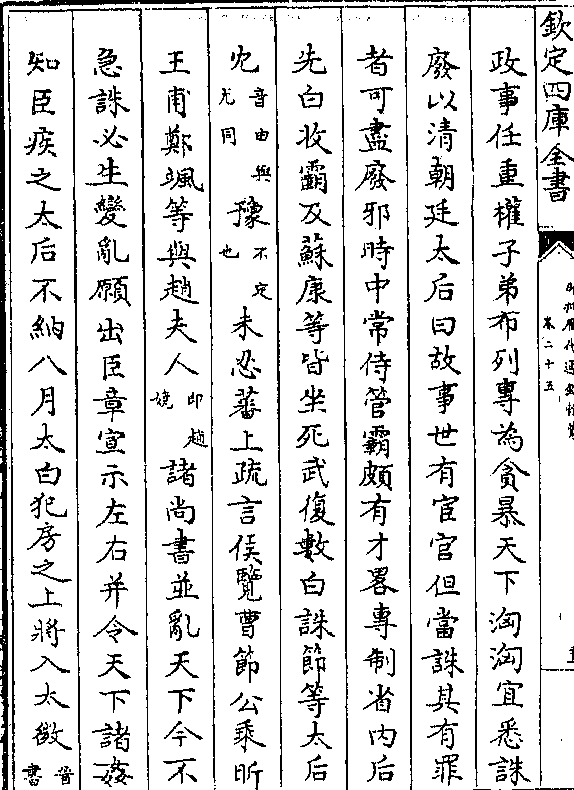 欽定四庫全書
卷二十五
政事任重權子弟布列專為貪暴天下洶洶宜悉誅
廢以清朝廷太后曰故事世有宦官但當誅其有罪
者可盡廢邪時中常侍管霸頗有才畧專制省内后
先白收霸及蘇康等皆坐死武復數白誅節等太后
冘音由與尤同豫不定也未忍蕃上疏言侯覽曹節公乘昕
王甫鄭颯等與趙夫人即趙嬈諸尚書並亂天下今不
急誅必生變亂願出臣章宣示左右并令天下諸姦
知臣疾之太后不納八月太白犯房之上將入太微晉書